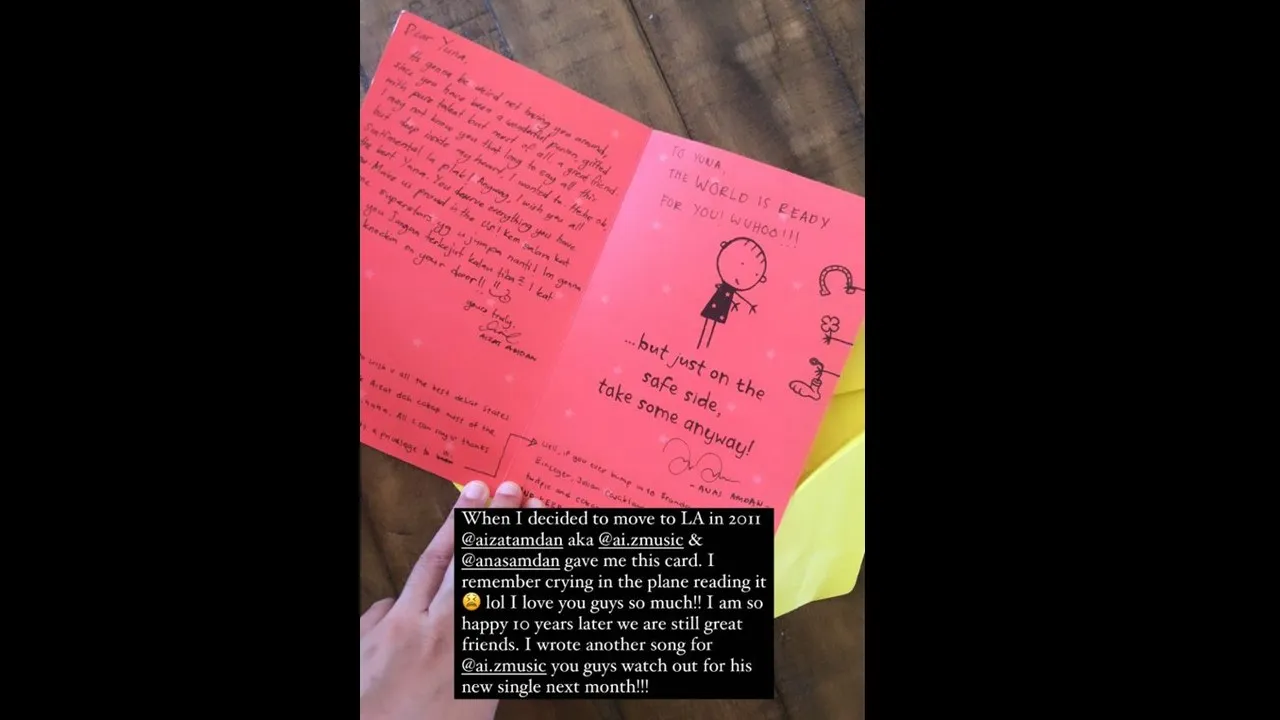 Dear Yuna,
Its gonna be weird not having you around,
since you have been a wonderful person, gifted
with pure talent but most of all, a great friend.
I may not know you that long to say all this
but deep inside my heart, I wanted to. Hehe ok,
Sentimental la plak! Anyway, I wish you all
the best Yuna. You deserve everything you have
Make us proud in the US! Kem salam kat
superstars yg u jumpa nanti! Im gonna
you Jangan terkejut kalau tiba2 I kat
knockin on your door!! !!
yours truly,
AIZAT AMDAN
wish u all the best dekat States.
Aizat dah cakap most of the
All I can say is thanks
a privilege to
TO YUNA,
THE WORLD IS READY
FOR YOU! WUHOO!!!
...but just on the
safe side,
take some anyway!
- ANAS AMDAN
Well, if you ever bump into Brandon
Julian
When I decided to move to LA in 2011
@aizatamdan aka @ai.zmusic &
@anasamdan gave me this card. I
remember crying in the plane reading it
😫 lol I love you guys so much!! I am so
happy 10 years later we are still great
friends. I wrote another song for
@ai.zmusic you guys watch out for his
new single next month!!!